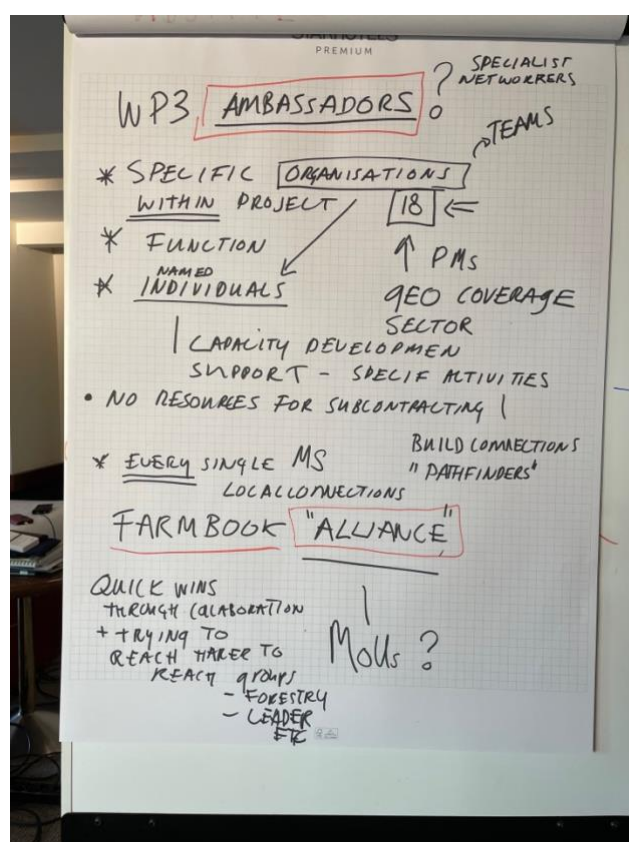 STARHOTELS
PREMIUM
WP3 AMBASSADORS ?
SPECIALIST
NETWORKERS
TEAMS
* SPECIFIC ORGANISATIONS
WITHIN PROJECT
18
* FUNCTION
PMs
* NAMED
INDIVIDUALS
GEO COVERAGE
SECTOR
CAPACITY DEVELOPMEN
SUPPORT - SPECIF ACTIVITIES
• NO RESOURCES FOR SUBCONTRACTING !
BUILD CONNECTIONS
"PATHFINDERS"
* EVERY SINGLE MS
LOCAL CONNECTIONS
FARMBOOK "ALLIANCE"
QUICK WINS
THROUGH COLABORATION
+ TRYING TO
REACH HARER TO
REACH groups
- FORESTRY
- LEADER
ETC
MoUs ?